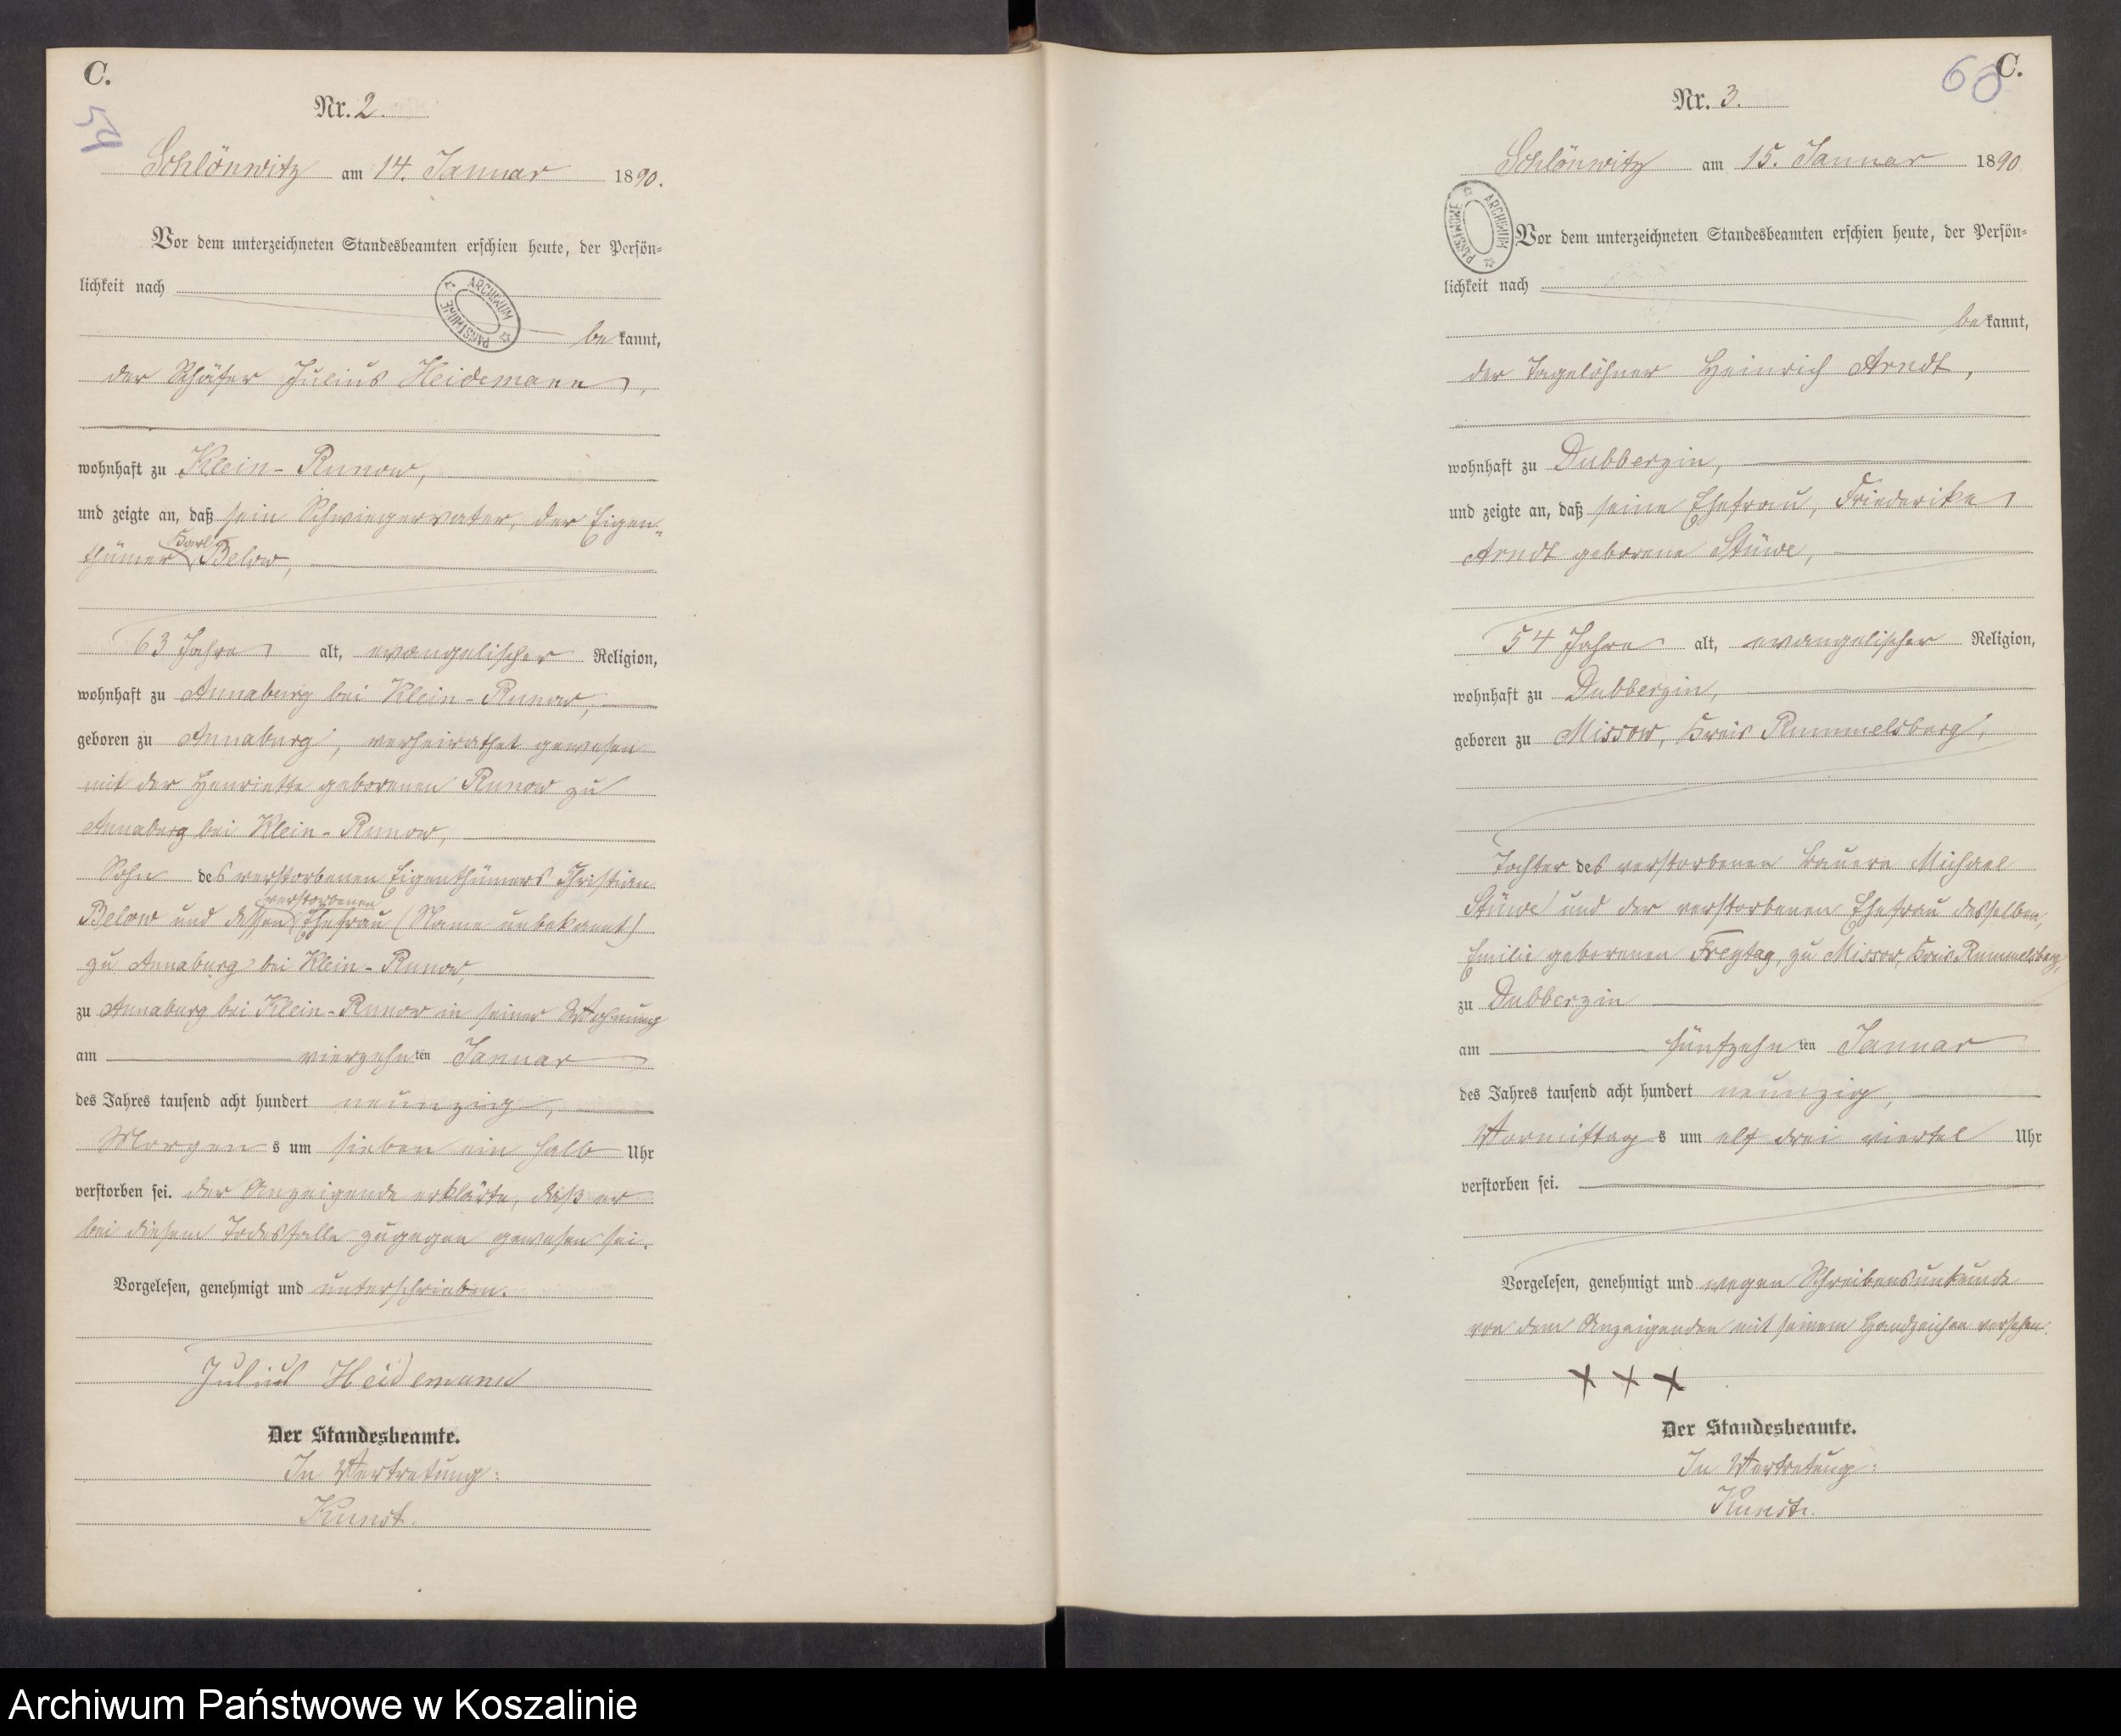 C.
59
Nr. 2.
Schlönwitz am 14. Januar 1890.
Vor dem unterzeichneten Standesbeamten erschien heute, der Persön=
lichkeit nach
bekannt,
der Schäfer Julius Heidemann,
wohnhaft zu Klein-Runow,
und zeigte an, daß sein Schwiegervater, der Eigen-
Karl
thümer Below,
63 Jahre alt, evangelischer Religion,
wohnhaft zu Annaburg bei Klein-Runow,
geboren zu Annaburg, verheirathet gewesen
mit der Henriette geborenen Runow zu
Annaburg bei Klein-Runow,
Sohn des verstorbenen Eigenthümers Christian
verstorbenen
Below und dessen Ehefrau (Name unbekannt)
zu Annaburg bei Klein-Runow,
zu Annaburg bei Klein-Runow in seiner Wohnung
am vierzehnten Januar
des Jahres tausend acht hundert neunzig,
Morgens um sieben ein halb Uhr
verstorben sei. der Anzeigende erklärte, daß er
bei diesem Todesfalle zugegen gewesen sei.
Vorgelesen, genehmigt und unterschrieben.
Julius Heidemann
Der Standesbeamte.
In Vertretung:
Kunst.
ARCHIWUM PAŃSTWOWE
C.
60
Nr. 3.
Schlönwitz am 15. Januar 1890
Vor dem unterzeichneten Standesbeamten erschien heute, der Persön=
lichkeit nach
bekannt,
der Tagelöhner Heinrich Arndt,
wohnhaft zu Dubberzin,
und zeigte an, daß seine Ehefrau, Friederike
Arndt geborene Stüwe,
54 Jahre alt, evangelischer Religion,
wohnhaft zu Dubberzin,
geboren zu Missow, Kreis Rummelsburg,
Tochter des verstorbenen Bauern Michael
Stüwe und der verstorbenen Ehefrau desselben,
Emilie geborenen Freytag, zu Missow, Kreis Rummelsburg,
zu Dubberzin
am fünfzehnten Januar
des Jahres tausend acht hundert neunzig,
Vormittags um elf drei viertel Uhr
verstorben sei.
Vorgelesen, genehmigt und wegen Schreibensunkunde
von dem Anzeigenden mit seinem Handzeichen versehen.
+ + +
Der Standesbeamte.
In Vertretung:
Kunst.
ARCHIWUM PAŃSTWOWE
Archiwum Państwowe w Koszalinie